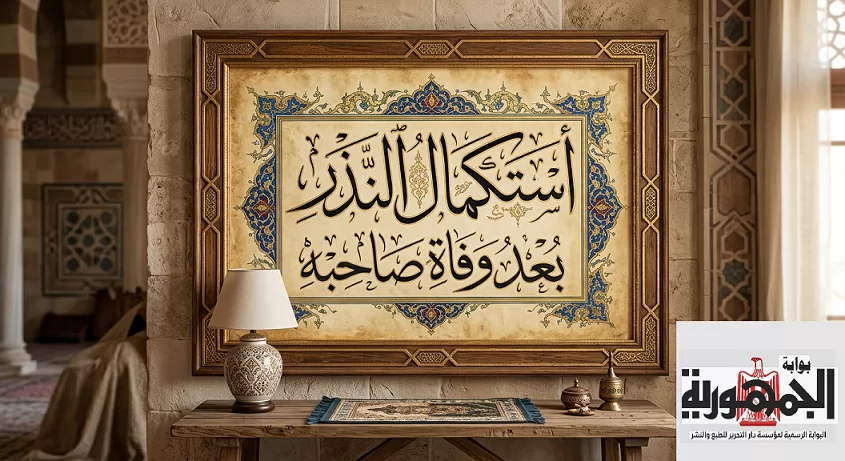 أستكمال النَّذَرِ
بُعدُ وَفَاةِ صَاحِبهِ
بوابة
الجمهورية
البوابة الرسمية لمؤسسة دار التحرير للطبع والنشر